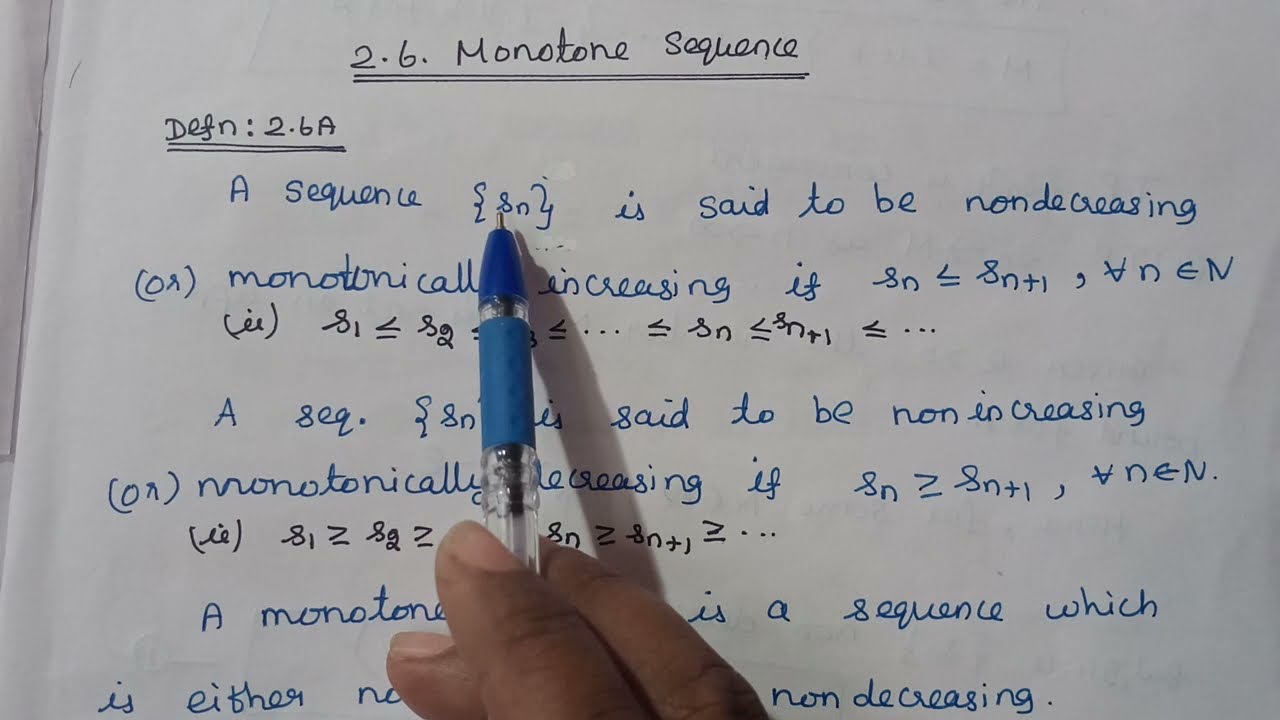 2.6. Monotone Sequence
Defn: 2.6A
A sequence {sn} is said to be nondecreasing
(or) monotonically increasing if sn ≤ sn+1, ∀ n ∈ N
(ie) s1 ≤ s2 ≤ ≤ ... ≤ sn ≤ sn+1 ≤ ...
A seq. {sn is said to be nonincreasing
(or) monotonically decreasing if sn ≥ sn+1, ∀ n ∈ N.
(ie) s1 ≥ s2 ≥ sn ≥ sn+1 ≥ ...
A monotone is a sequence which
is either nondecreasing.